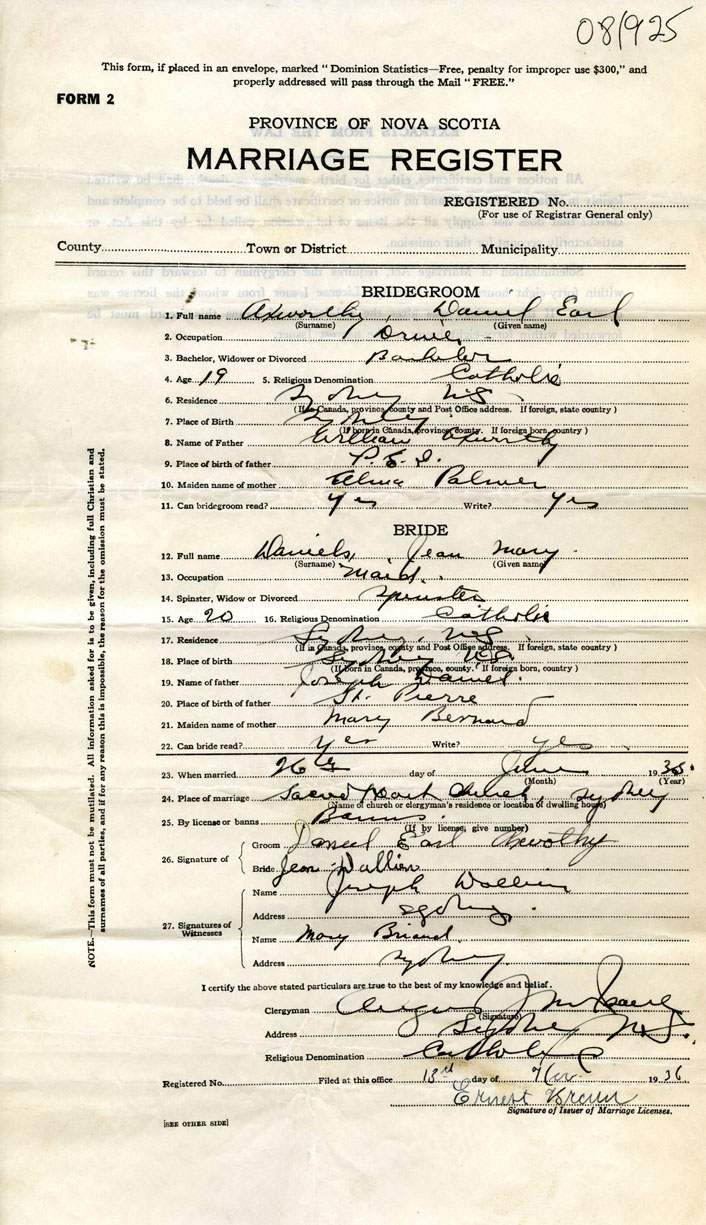 08/925
This form, if placed in an envelope, marked "Dominion Statistics—Free, penalty for improper use $300," and
properly addressed will pass through the Mail "FREE."
FORM 2
PROVINCE OF NOVA SCOTIA
MARRIAGE REGISTER
REGISTERED No.
(For use of Registrar General only)
County Town or District Municipality
BRIDEGROOM
1. Full name Axworthy, Daniel Earl
(Surname) (Given name)
2. Occupation Driver
3. Bachelor, Widower or Divorced Bachelor
4. Age 19 5. Religious Denomination Catholic
6. Residence Sydney NS
(If in Canada, province, county and Post Office address. If foreign, state country)
7. Place of Birth Sydney
(If born in Canada, province, county. If foreign born, country)
8. Name of Father William Axworthy
9. Place of birth of father P.E.I.
10. Maiden name of mother Palmer
11. Can bridegroom read? yes Write? yes
BRIDE
12. Full name Daniels, Jean Mary
(Surname) (Given name)
13. Occupation Maid
14. Spinster, Widow or Divorced Spinster
15. Age 20 16. Religious Denomination Catholic
17. Residence Sydney, NS
(If in Canada, province, county and Post Office address. If foreign, state country)
18. Place of birth Sydney NS
(If born in Canada, province, county. If foreign born, country)
19. Name of father Joseph Daniel
20. Place of birth of father St. Pierre
21. Maiden name of mother Mary Bernard
22. Can bride read? yes Write? yes
23. When married 26th day of June 19
(Month) (Year)
24. Place of marriage Sacred Heart Church, Sydney
(Name of church or clergyman's residence or location of dwelling house)
25. By license or banns Banns
(If by license, give number)
26. Signature of Groom Daniel Earl Axworthy
Bride Jean
27. Signatures of Witnesses
Name Joseph
Address Sydney
Name Mary Briand
Address Sydney
I certify the above stated particulars are true to the best of my knowledge and belief.
Clergyman Angus
(Signature)
Address Sydney N.S.
Religious Denomination Catholic
Registered No. Filed at this office 13th day of 1936
Ernest
Signature of Issuer of Marriage Licenses.
[SEE OTHER SIDE]
NOTE.—This form must not be mutilated. All information asked for is to be given, including full Christian and
surnames of all parties, and if for any reason this is impossible, the reason for the omission must be stated.